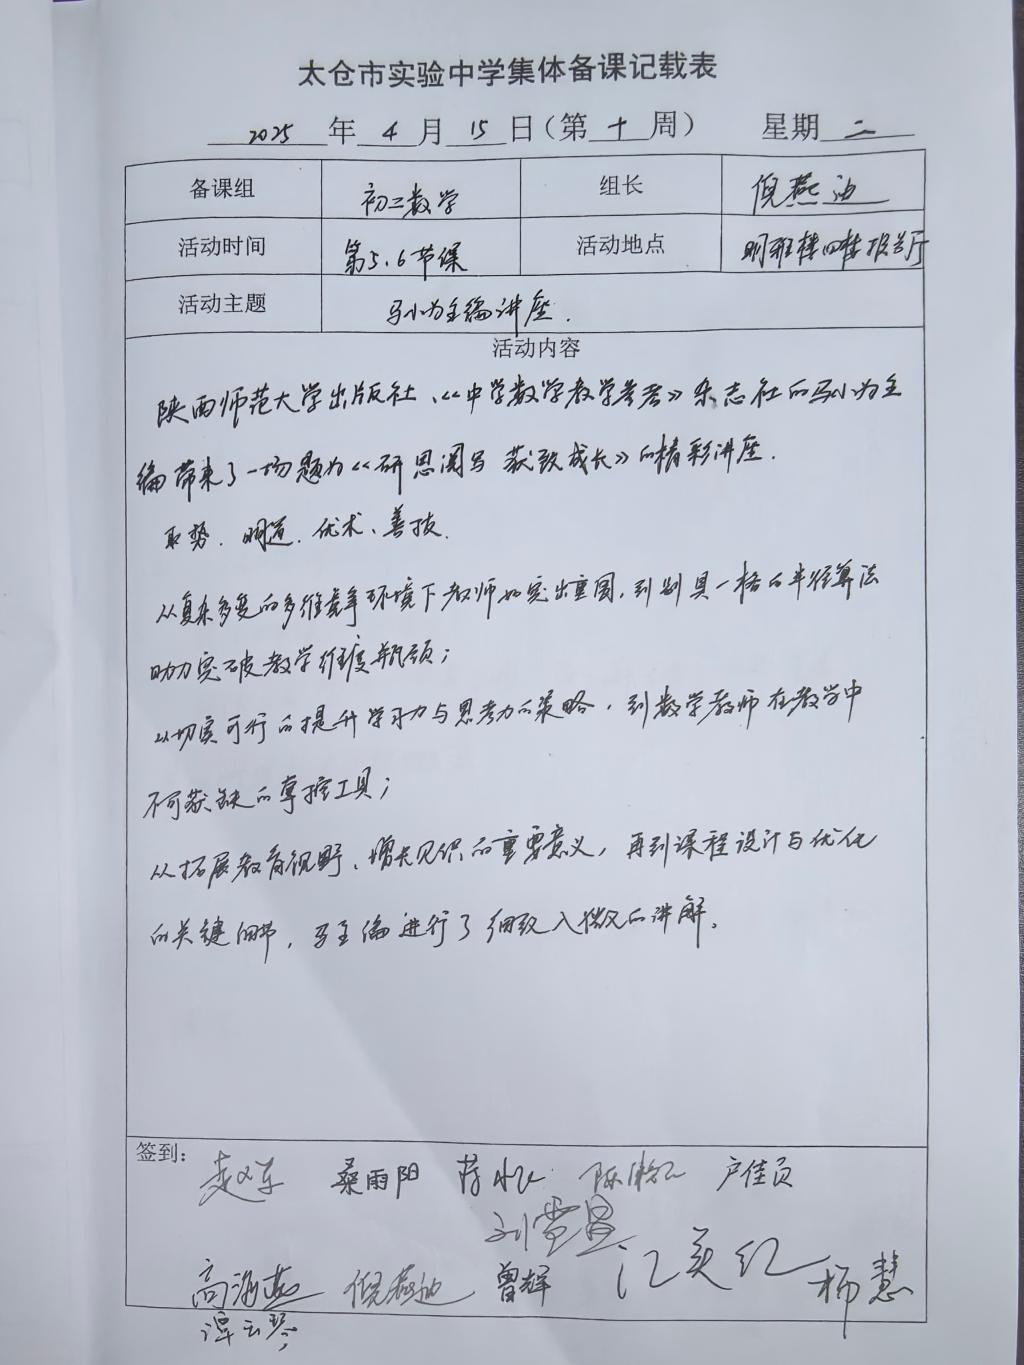 太仓市实验中学集体备课记载表
2025 年 4 月 15 日（第 十 周） 星期 二
备课组 初二数学 组长 倪燕迪
活动时间 第5、6节课 活动地点 明班楼四楼报告厅
活动主题 马小为主编讲座.
活动内容
陕西师范大学出版社、《中学数学教学参考》杂志社的马小为主
编带来了一场题为《研思阅写 获致成长》的精彩讲座.
取势、明道、优术、善技.
从复杂多变的多维竞争环境下教师如突出重围，到别具一格的半径算法
助力突破教学维度瓶颈；
从切实可行的提升学习力与思考力的策略，到数学教师在教学中
不可获缺的掌控工具；
从拓展教育视野、增长见识的重要意义，再到课程设计与优化
的关键细节，马主编进行了细致入微的讲解。
签到：
桑雨阳
刘雪昌
高海燕 倪燕迪 曾辉 江美红 杨慧
谭云琴